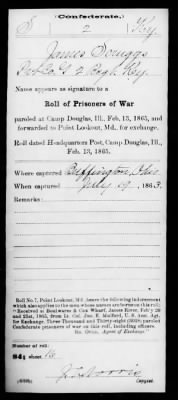 (Confederate.)
S 2 Ky.
James Scruggs
Pvt Co. G 2 Regt. Ky.
Name appears as signature to a
Roll of Prisoners of War
paroled at Camp Douglas, Ill., Feb. 13, 1865, and
forwarded to Point Lookout, Md., for exchange.
Roll dated Headquarters Post, Camp Douglas, Ill.,
Feb. 13, 1865.
Where captured Buffington, Ohio
When captured July 19, 1863.
Remarks:
Roll No. 7, Point Lookout, Md., bears the following indorsement
which also applies to the men whose names are borne on this roll:
"Received at Boulwares & Cox Wharf, James River, Feb'y 20
and 21st, 1865, from Lt. Col. Jno. E. Mulford, U. S. Ass't Agt.
for Exchange, Three Thousand and Thirty-eight (3038) paroled
Confederate prisoners of war on this roll, including officers.
Ro. Ould, Agent of Exchange."
Number of roll:
sheet
Copyist.